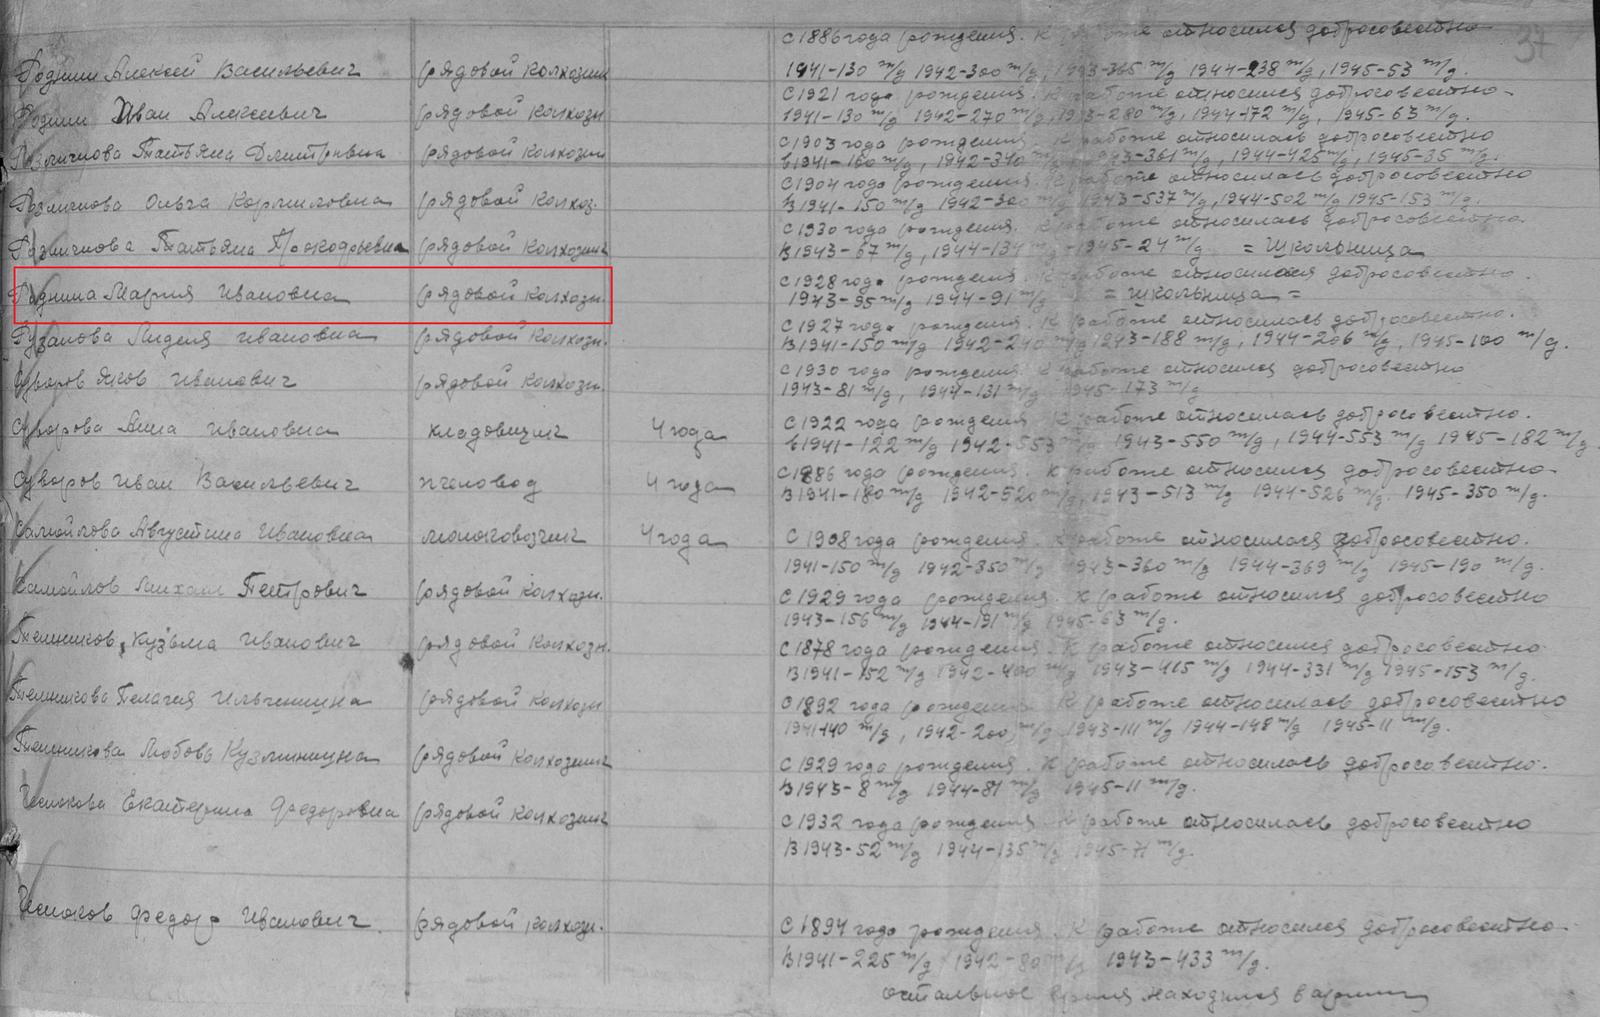 37
С 1886 года рождения. К работе относился добросовестно
Роднин Алексей Васильевич рядовой колхозник 1941-130 т/д 1942-300 т/д, 1943-365 т/д 1944-238 т/д, 1945-53 т/д.
С 1921 года рождения. К работе относился добросовестно-
Роднин Иван Алексеевич рядовой колхозн 1941-130 т/д 1942-270 т/д, 1943-280 т/д, 1944-172 т/д, 1945-63 т/д.
С 1903 года рождения. К работе относилась добросовестно
Розмичнова Татьяна Дмитривна рядовой колхозни В 1941-160 т/д, 1942-340 т/д 1943-361 т/д, 1944-425 т/д, 1945-35 т/д.
С 1904 года рождения. К работе относилась добросовестно
Розмичнова Ольга Корниловна рядовой колхоз. В 1941-150 т/д 1942-300 т/д 1943-537 т/д, 1944-502 т/д 1945-153 т/д.
С 1930 года рождения. К работе относилась добросовестно.
Розмичнова Татьяна Прокофьевна рядовой колхозник В 1943-67 т/д, 1944-134 т/д 1945-24 т/д = Школьница
С 1928 года рождения. К работе относилася добросовестно.
Роднина Мария Ивановна рядовой колхозн. 1943-95 т/д 1944-91 т/д = школьница =
С 1927 года рождения. К работе относилась добросовестно.
Рузанова Лидея ивановна рядовой колхозн. В 1941-150 т/д 1942-240 т/д 1943-188 т/д, 1944-206 т/д, 1945-100 т/д.
С 1930 года рождения. К работе относился добросовестно
Суворов Яков Иванович рядовой колхозн. 1943-81 т/д, 1944-131 т/д 1945-173 т/д
С 1922 года рождения. К работе относилась добросовестно.
Суворова Анна Ивановна кладовщик 4 года В 1941-122 т/д 1942-553 т/д 1943-550 т/д, 1944-553 т/д 1945-182 т/д
С 1886 года рождения. К работе относился добросовестно
Суворов Иван Васильевич пчеловод 4 года В 1941-180 т/д 1942-520 т/д, 1943-513 т/д 1944-526 т/д. 1945-350 т/д.
Самойлова Августина Ивановна молоковозчик 4 года С 1908 года рождения. К работе относилася добросовестно.
1941-150 т/д 1942-350 т/д 1943-360 т/д 1944-369 т/д 1945-190 т/д.
Самойлов Михаил Петрович рядовой колхозн. С 1929 года рождения. К работе относился добросовестно
1943-156 т/д 1944-191 т/д 1945-63 т/д.
Телишков Кузьма Иванович рядовой колхозн. С 1878 года рождения. К работе относился добросовестно.
В 1941-152 т/д 1942-400 т/д 1943-415 т/д 1944-331 т/д 1945-153 т/д.
Пелагея Ильинишна рядовой колхозн С 1892 года рождения. К работе относилась добросовестно
1941-140 т/д, 1942-200 т/д 1943-111 т/д 1944-148 т/д 1945-11 т/д.
Любовь Кузминишна рядовой колхозник С 1929 года рождения. К работе относилась добросовестно.
В 1943-8 т/д 1944-81 т/д 1945-11 т/д.
Чеснокова Екатерина Федоровна рядовой колхозник С 1932 года рождения. К работе относилась добросовестно
В 1943-52 т/д 1944-135 т/д 1945-71 т/д.
Чесноков Федор Иванович. рядовой колхозн. С 1894 года рождения. К работе относился добросовестно
В 1941-225 т/д 1942-80 т/д 1943-433 т/д.
остальное время находился в армии